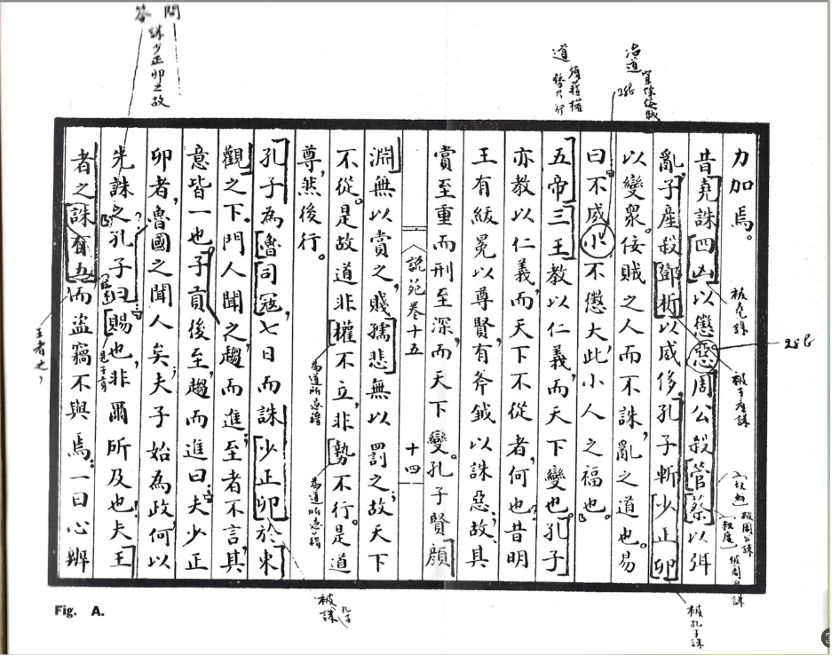 問答
誅少正卯之故
道
治道
28b
力加焉。
昔堯誅四凶以懲惡周公殺管蔡以弭
亂子產殺鄧析以威侈孔子斬少正卯
以變衆。佞賊之人而不誅,亂之道也。易
曰不威小不懲大此小人之福也。
五帝三王教以仁義而天下變也孔子
亦教以仁義而天下不從者何也昔明
王有紱冕以尊賢有斧鉞以誅惡故其
賞至重而刑至深而天下變。孔子賢顏
說苑卷十五 十四
淵無以賞之賤孺悲無以罰之故天下
不從是故道非權不立非勢不行是道
尊然後行。
孔子為魯司寇七日而誅少正卯於東
觀之下門人聞之趨而進至者不言其
意皆一也子貢後至趨而進曰夫少正
卯者魯國之聞人矣夫子始為政何以
先誅之孔子曰賜也非爾所及也夫王
者之誅有五而盜竊不與焉一曰心辨
被堯誅
28b
被子產誅
被周公誅
被周公誅
被孔子誅
被孔子誅
王者之
Fig. A.